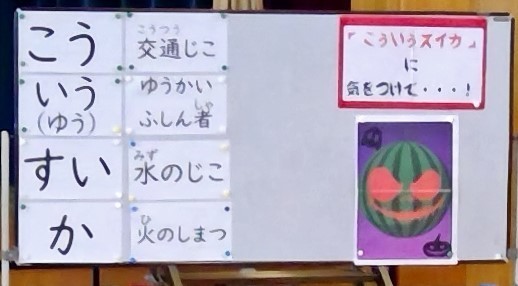 こう
こうつう
交通じこ
いう
(ゆう)
ゆうかい
ふしん者
しゃ
すい
みず
水のじこ
か
ひ
火のしまつ
「こういうスイカ」
に
気をつけて・・・!